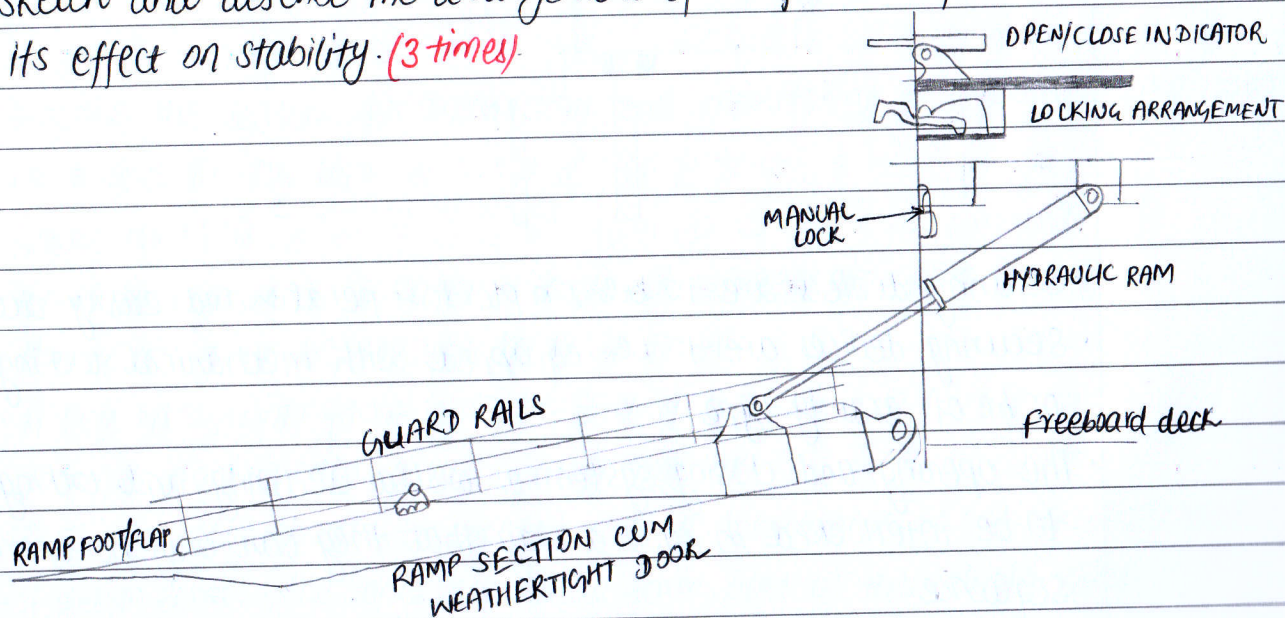 sketch and describe the
its effect on stability. (3 times)
OPEN/CLOSE INDICATOR
LOCKING ARRANGEMENT
MANUAL
LOCK
HYDRAULIC RAM
GUARD RAILS
Freeboard deck
RAMP FOOT/FLAP
RAMP SECTION CUM
WEATHERTIGHT DOOR